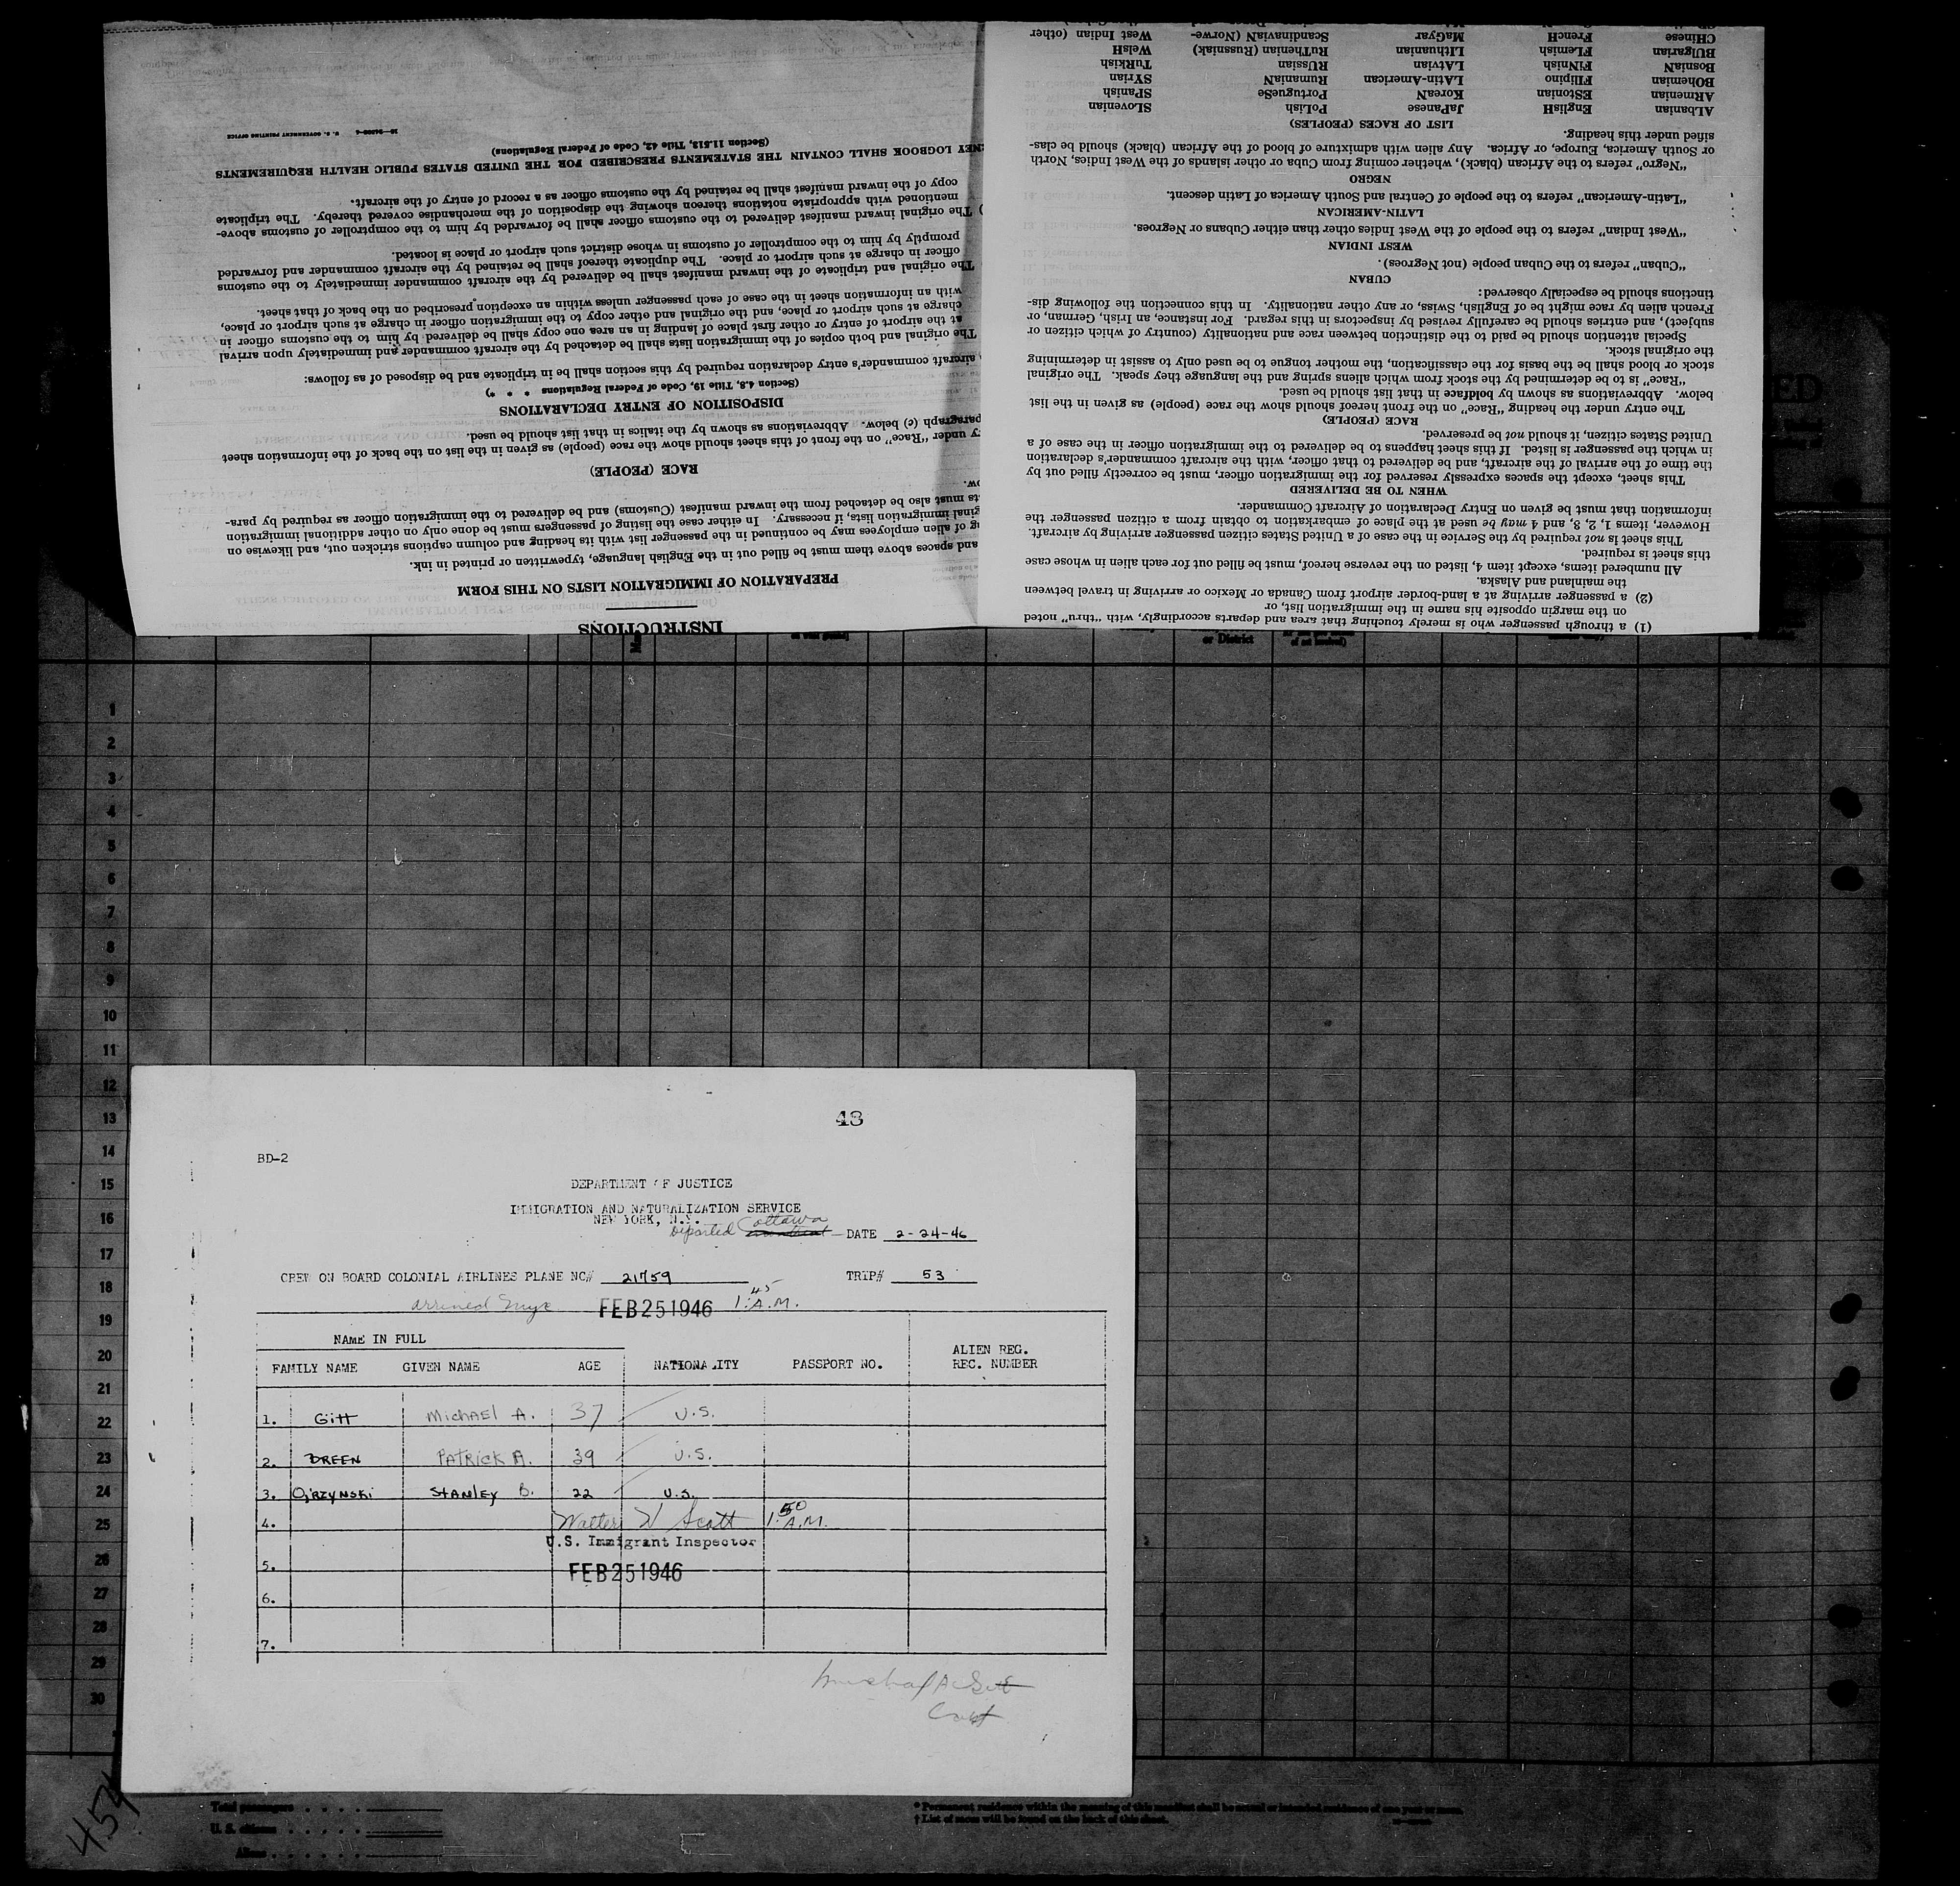 INSTRUCTIONS
PREPARATION OF IMMIGRATION LISTS ON THIS FORM
and spaces above them must be filled out in the English language, typewritten or printed in ink.
of alien employees may be continued in the passenger list with its heading and column captions stricken out, and likewise on
immigration lists, if necessary. In either case the listing of passengers must be done only on other additional immigration
must also be detached from the inward manifest (Customs) and be delivered to the immigration officer as required by para-
RACE (PEOPLE)
under "Race" on the front of this sheet should show the race (people) as given in the list on the back of the information sheet
paragraph (c) below. Abbreviations as shown by the italics in that list should be used.
DISPOSITION OF ENTRY DECLARATIONS
(Section 4.8, Title 19, Code of Federal Regulations * * *)
aircraft commander's entry declaration required by this section shall be in triplicate and be disposed of as follows:
The original and both copies of the immigration lists shall be detached by the aircraft commander and immediately upon arrival
at the airport of entry or other first place of landing in an area one copy shall be delivered by him to the customs officer in
charge at such airport or place, and the original and other copy to the immigration officer in charge at such airport or place,
with an information sheet in the case of each passenger unless within an exception prescribed on the back of that sheet.
The original and triplicate of the inward manifest shall be delivered by the aircraft commander immediately to the customs
officer in charge at such airport or place. The duplicate thereof shall be retained by the aircraft commander and forwarded
promptly by him to the comptroller of customs in whose district such airport or place is located.
The original inward manifest delivered to the customs officer shall be forwarded by him to the comptroller of customs above-
mentioned with appropriate notations thereon showing the disposition of the merchandise covered thereby. The triplicate
copy of the inward manifest shall be retained by the customs officer as a record of entry of the aircraft.
LOGBOOK SHALL CONTAIN THE STATEMENTS PRESCRIBED FOR THE UNITED STATES PUBLIC HEALTH REQUIREMENTS
(Section 11.513, Title 42, Code of Federal Regulations)
U. S. GOVERNMENT PRINTING OFFICE
(1) a through passenger who is merely touching that area and departs accordingly, with "thru" noted
on the margin opposite his name in the immigration list, or
(2) a passenger arriving at a land-border airport from Canada or Mexico or arriving in travel between
the mainland and Alaska.
All numbered items, except item 4, listed on the reverse hereof, must be filled out for each alien in whose case
this sheet is required.
This sheet is not required by the Service in the case of a United States citizen passenger arriving by aircraft.
However, items 1, 2, 3, and 4 may be used at the place of embarkation to obtain from a citizen passenger the
information that must be given on Entry Declaration of Aircraft Commander.
WHEN TO BE DELIVERED
This sheet, except the spaces expressly reserved for the immigration officer, must be correctly filled out by
the time of the arrival of the aircraft, and be delivered to that officer, with the aircraft commander's declaration
in which the passenger is listed. If this sheet happens to be delivered to the immigration officer in the case of a
United States citizen, it should not be preserved.
RACE (PEOPLE)
The entry under the heading "Race" on the front hereof should show the race (people) as given in the list
below. Abbreviations as shown by boldface in that list should be used.
"Race" is to be determined by the stock from which aliens spring and the language they speak. The original
stock or blood shall be the basis for the classification, the mother tongue to be used only to assist in determining
the original stock.
Special attention should be paid to the distinction between race and nationality (country of which citizen or
subject), and entries should be carefully revised by inspectors in this regard. For instance, an Irish, German, or
French alien by race might be of English, Swiss, or any other nationality. In this connection the following dis-
tinctions should be especially observed:
CUBAN
"Cuban" refers to the Cuban people (not Negroes).
WEST INDIAN
"West Indian" refers to the people of the West Indies other than either Cubans or Negroes.
LATIN-AMERICAN
"Latin-American" refers to the people of Central and South America of Latin descent.
NEGRO
"Negro" refers to the African (black), whether coming from Cuba or other islands of the West Indies, North
or South America, Europe, or Africa. Any alien with admixture of blood of the African (black) should be clas-
sified under this heading.
LIST OF RACES (PEOPLES)
ALbanian EngliSH JaPanese PoLish SLOvenian
ARMenian ESTonian KoreaN PortugueSe SPanish
BOHemian FIlipino LAtin-American RumaniaN SYrian
BosniaN FINNish LAtvian RUssian TuRKish
BULgarian FLemish LIthuanian RuThenian (Russniak) WelsH
CHInese FrencH MaGyar ScandinaviaN (Norwe- West Indian (other
or District
1
2
3
4
5
6
7
8
9
10
11
12
13
14
15
16
17
18
19
20
21
22
23
24
25
26
27
28
29
30
43
BD-2
DEPARTMENT OF JUSTICE
IMMIGRATION AND NATURALIZATION SERVICE
NEW YORK, N.Y.
Departed Ottawa DATE 2-24-46
CREW ON BOARD COLONIAL AIRLINES PLANE NO# 21759 TRIP# 53
arrived FEB 25 1946 1:45 A.M.
NAME IN FULL
FAMILY NAME GIVEN NAME AGE NATIONALITY PASSPORT NO. ALIEN REG. REC. NUMBER
1. Gitt Michael A. 37 U.S.
2. BREEN PATRICK A. 39 U.S.
3. OJRZYNSKI STANLEY B. 22 U.S.
4. Walter W Scott 1:50 A.M.
U.S. Immigrant Inspector
5. FEB 25 1946
6.
7.
Michael A Gitt
Capt
454
Total passengers
U. S. citizens
Aliens
* Permanent residence within the meaning of this manifest shall be actual or intended residence of one year or more.
† List of races will be found on the back of this sheet.